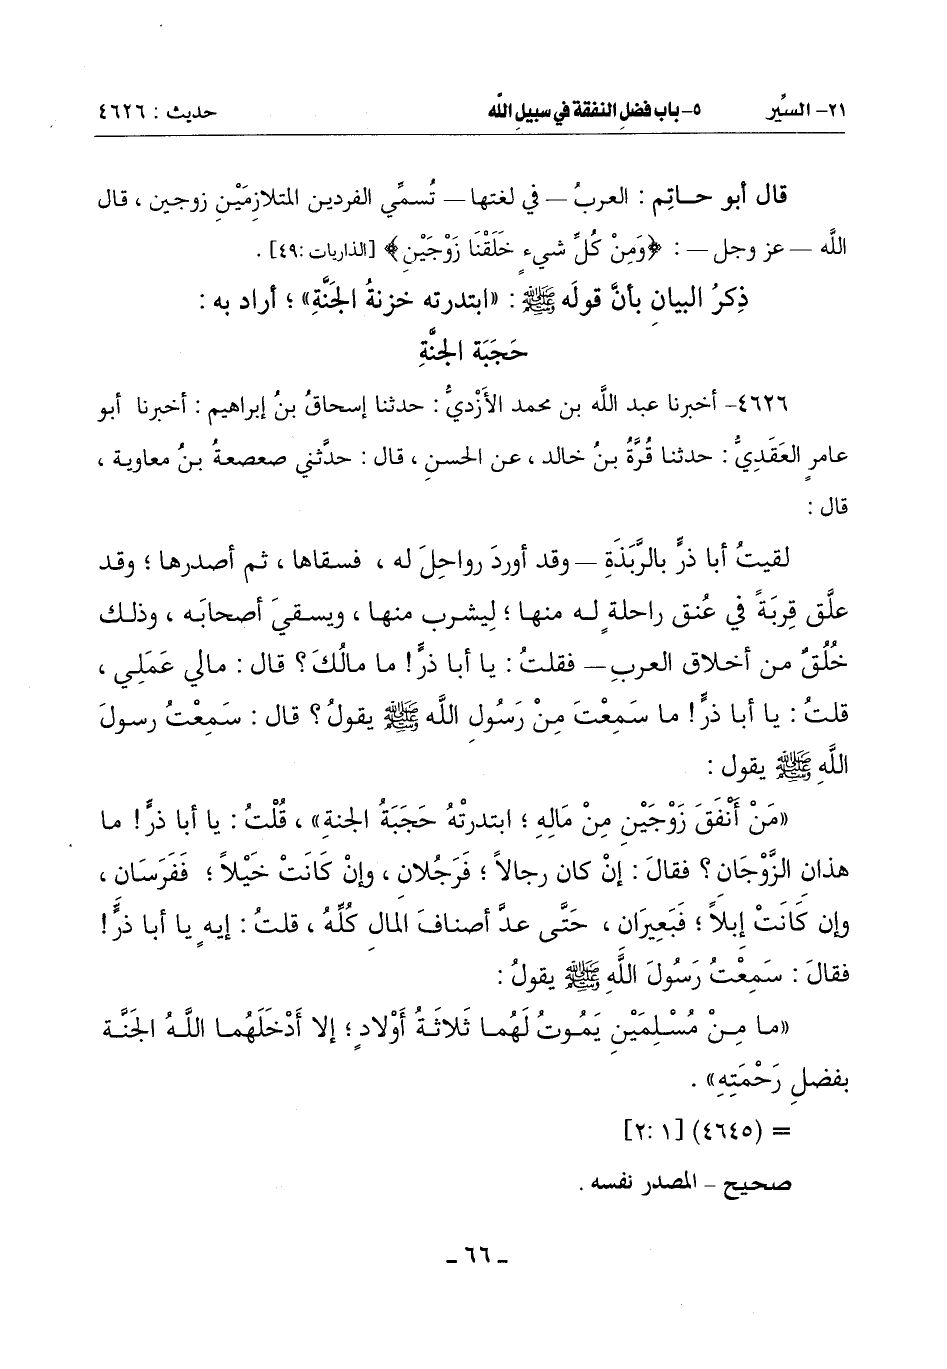 ٢١- السِّير ٥- باب فضل النفقة في سبيل الله حديث : ٤٦٢٦
قال أبو حـاتِم : العربُ – في لغتها – تُسمِّي الفردين المتلازِمَيْنِ زوجين ، قال
اللَّه – عز وجل – : ﴿وَمِنْ كُلِّ شيءٍ خَلَقْنَا زَوْجَيْنِ﴾ [الذاريات :٤٩] .
ذِكرُ البيان بأنَّ قولَه ﷺ : «ابتدرته خزنةُ الجَنَّةِ» ؛ أراد به :
حَجَبَة الجنَّةِ
٤٦٢٦- أخبرنا عبد اللَّه بن محمد الأَزْديُّ : حدثنا إسحاقُ بنُ إبراهيم : أخبرنا أبو
عامرٍ العَقَدِيُّ : حدثنا قُرَّةُ بنُ خالد ، عن الحسنِ ، قال : حدَّثني صعصعةُ بنُ معاوية ،
قال :
لقيتُ أبا ذرٍّ بالرَّبَذَةِ – وقد أوردَ رواحِلَ له ، فسقاها ، ثم أصدرها ؛ وقد
علَّق قِربَةً في عُنق راحلةٍ لـه منهـا ؛ لِيشرب منهـا ، ويسـقيَ أصحابَـه ، وذلـك
خُلُقٌ من أخلاق العربِ – فقلتُ : يا أبا ذرٍّ! ما مالُكَ؟ قال : مالي عَمَلِي ،
قلتُ : يا أبا ذرٍّ! ما سَمِعْتَ مِنْ رَسُولِ اللَّه ﷺ يقولُ؟ قال : سَمِعْتُ رسولَ
اللَّهِ ﷺ يقول :
«مَنْ أَنْفَقَ زَوْجَيْنِ مِنْ مَالِهِ ؛ ابتدرتْهُ حَجَبَةُ الجنةِ» ، قُلْتُ : يا أبا ذرٍّ! ما
هذان الزَّوْجَان؟ فقالَ : إنْ كان رجالاً ؛ فَرَجُلان ، وإنْ كَانَتْ خَيْلاً ؛ فَفَرَسَان ،
وإن كَانَتْ إبلاً ؛ فَبَعِيرَان ، حتَّى عدَّ أصنافَ المالِ كُلِّهُ ، قلتُ : إيهٍ يا أبا ذرٍّ!
فقالَ : سَمِعْتُ رَسُولَ اللَّهِ ﷺ يقولُ :
«ما مِـنْ مُسْـلِمَيْنِ يَمُوتُ لَهُما ثَلاثَـةُ أَوْلادٍ؛ إلا أَدْخَلَهُما اللَّـهُ الجَنَّـة
بفضلِ رَحْمَتِهِ» .
= (٤٦٤٥) [١ :٢]
صحيح – المصدر نفسه .
ـ ٦٦ ـ